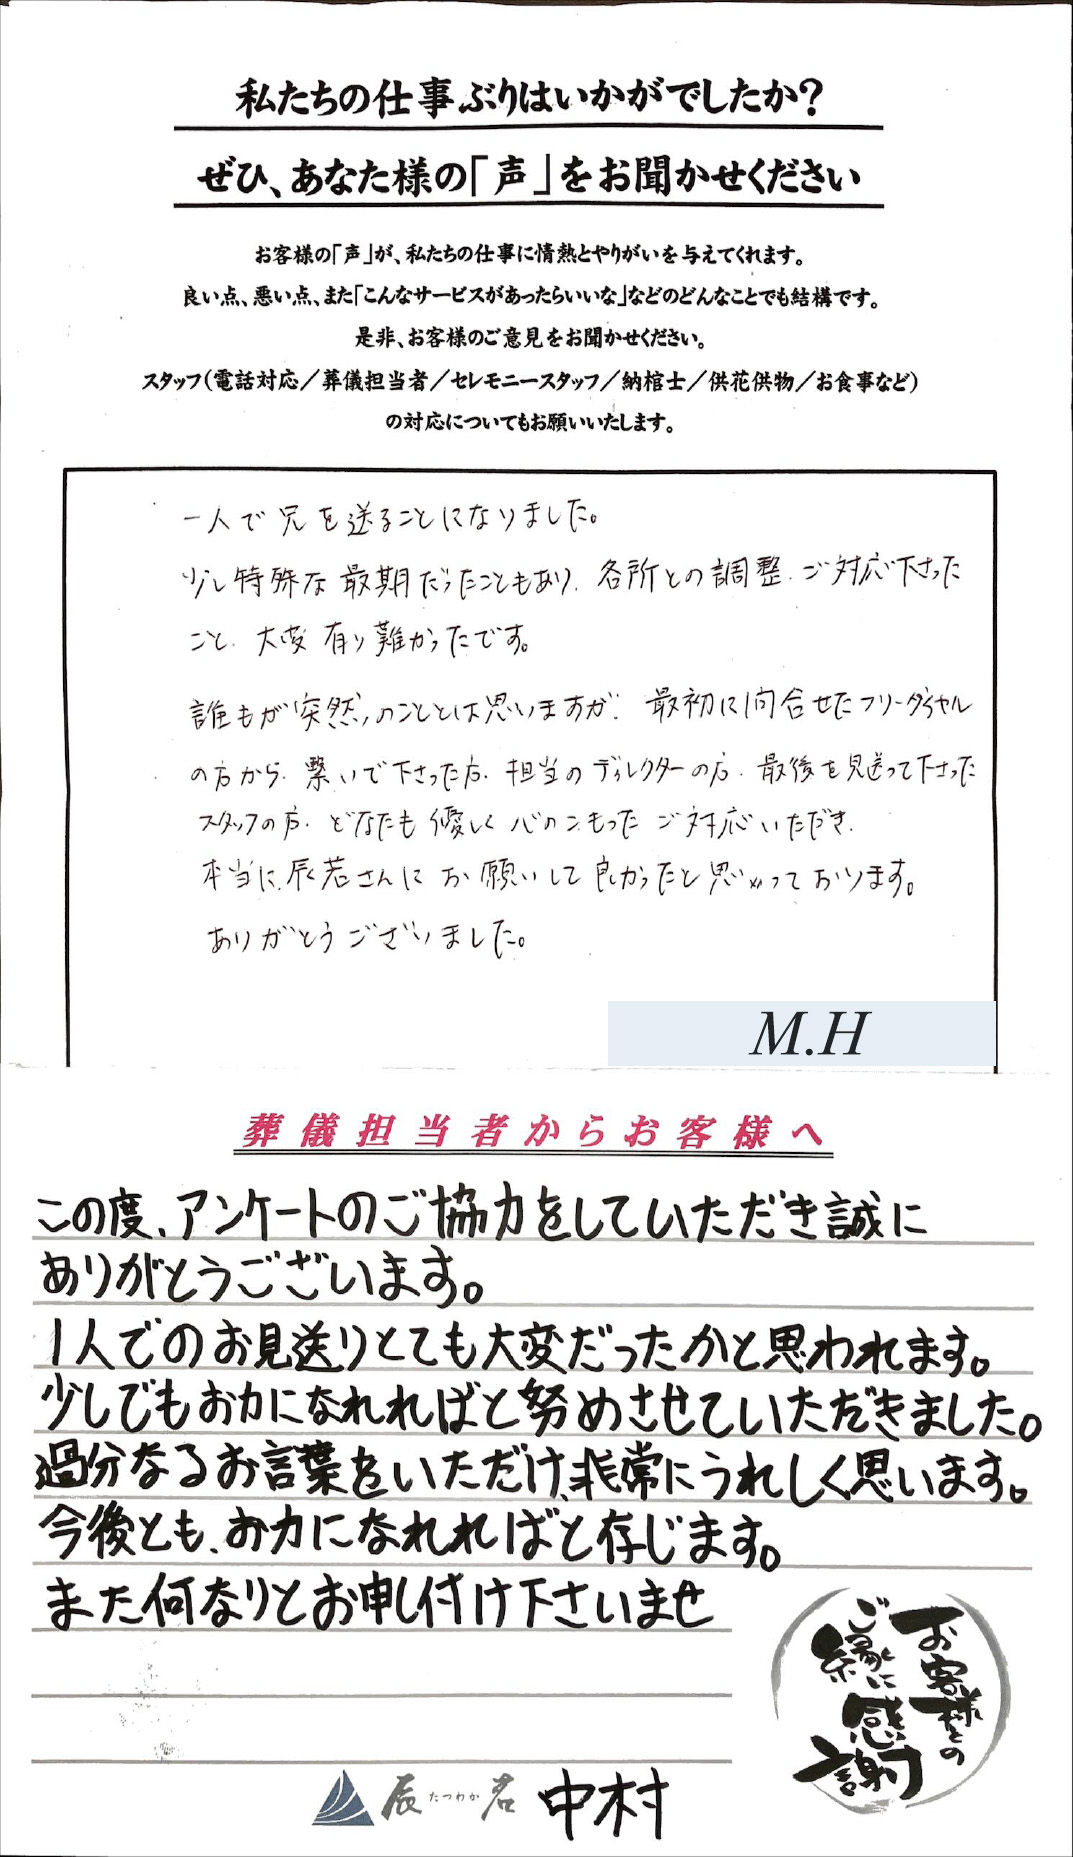 私たちの仕事ぶりはいかがでしたか?
ぜひ、あなた様の「声」をお聞かせください
お客様の「声」が、私たちの仕事に情熱とやりがいを与えてくれます。
良い点、悪い点、また「こんなサービスがあったらいいな」などのどんなことでも結構です。
是非、お客様のご意見をお聞かせください。
スタッフ(電話対応/葬儀担当者/セレモニースタッフ/納棺士/供花供物/お食事など)
の対応についてもお願いいたします。
一人で兄を送ることになりました。
少し特殊な最期だったこともあり、各所との調整、ご対応下さった
こと、大変有り難かったです。
誰もが突然のこととは思いますが、最初に問合せたフリーダイヤル
の方から、繋いで下さった方、担当のディレクターの方、最後を見送って下さった
スタッフの方、どなたも優しく心のこもったご対応いただき、
本当に辰若さんにお願いして良かったと思っております。
ありがとうございました。
M.H
葬儀担当者からお客様へ
この度、アンケートのご協力をしていただき誠に
ありがとうございます。
1人でのお見送りとても大変だったかと思われます。
少しでもお力になれればと努めさせていただきました。
過分なるお言葉をいただけ、非常にうれしく思います。
今後とも、お力になれればと存じます。
また何なりとお申し付け下さいませ
お客様との
ご縁に
感謝
辰たつわか若 中村